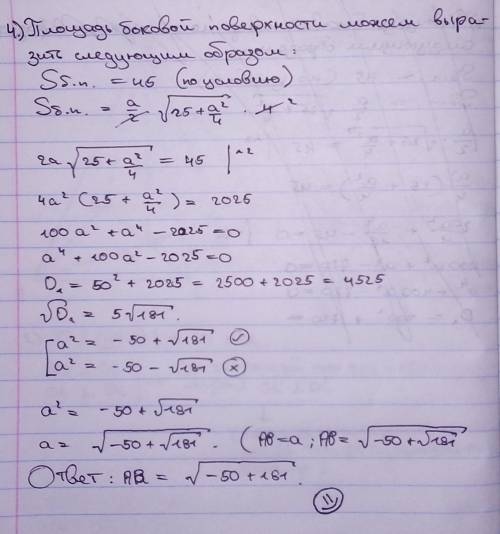 4.) Площадь боковой поверхности можем выра-
зить следующим образом:
Sб.п. = 45 (по условию)
Sб.п. = a/2 √(25 + a²/4) · 4 ²
2a √(25 + a²/4) = 45 |^2
4a² (25 + a²/4) = 2025
100a² + a⁴ - 2025 = 0
a⁴ + 100a² - 2025 = 0
D₁ = 50² + 2025 = 2500 + 2025 = 4525
√D₁ = 5√181.
[a² = -50 + √181 ✓
[a² = -50 - √181 ×
a² = -50 + √181
a = √(-50 + √181). (AB = a; AB = √(-50 + √181)
Ответ: AB = √(-50 + 181).